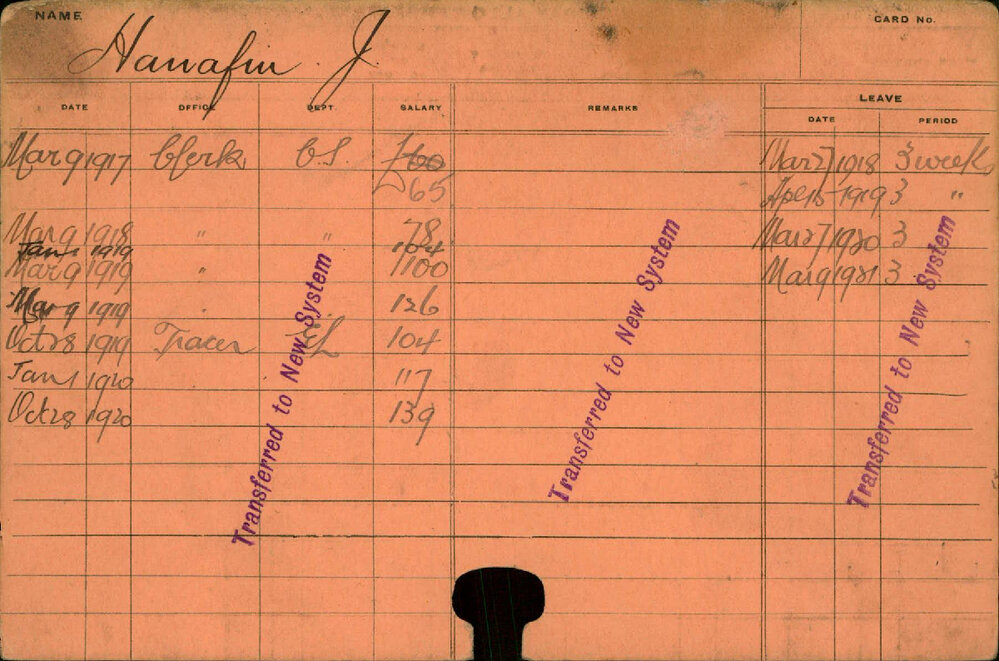 NAME
CARD No.
Hanafin J.
DATE OFFICE DEPT. SALARY REMARKS LEAVE
DATE PERIOD
Mar 9 1917 Clerk C.S. £60 Mar 27 1918 3 weeks
65 Apr 15 1919 3 "
Mar 9 1918 " " 78 Mar 27 1920 3
Jan 1 1919 104
Mar 9 1919 " 100 Mar 9 1921 3
Mar 9 1919 126
Oct 28 1919 Tracer 104
Jan 1 1920 117
Oct 28 1920 139
Transferred to New System
Transferred to New System
Transferred to New System